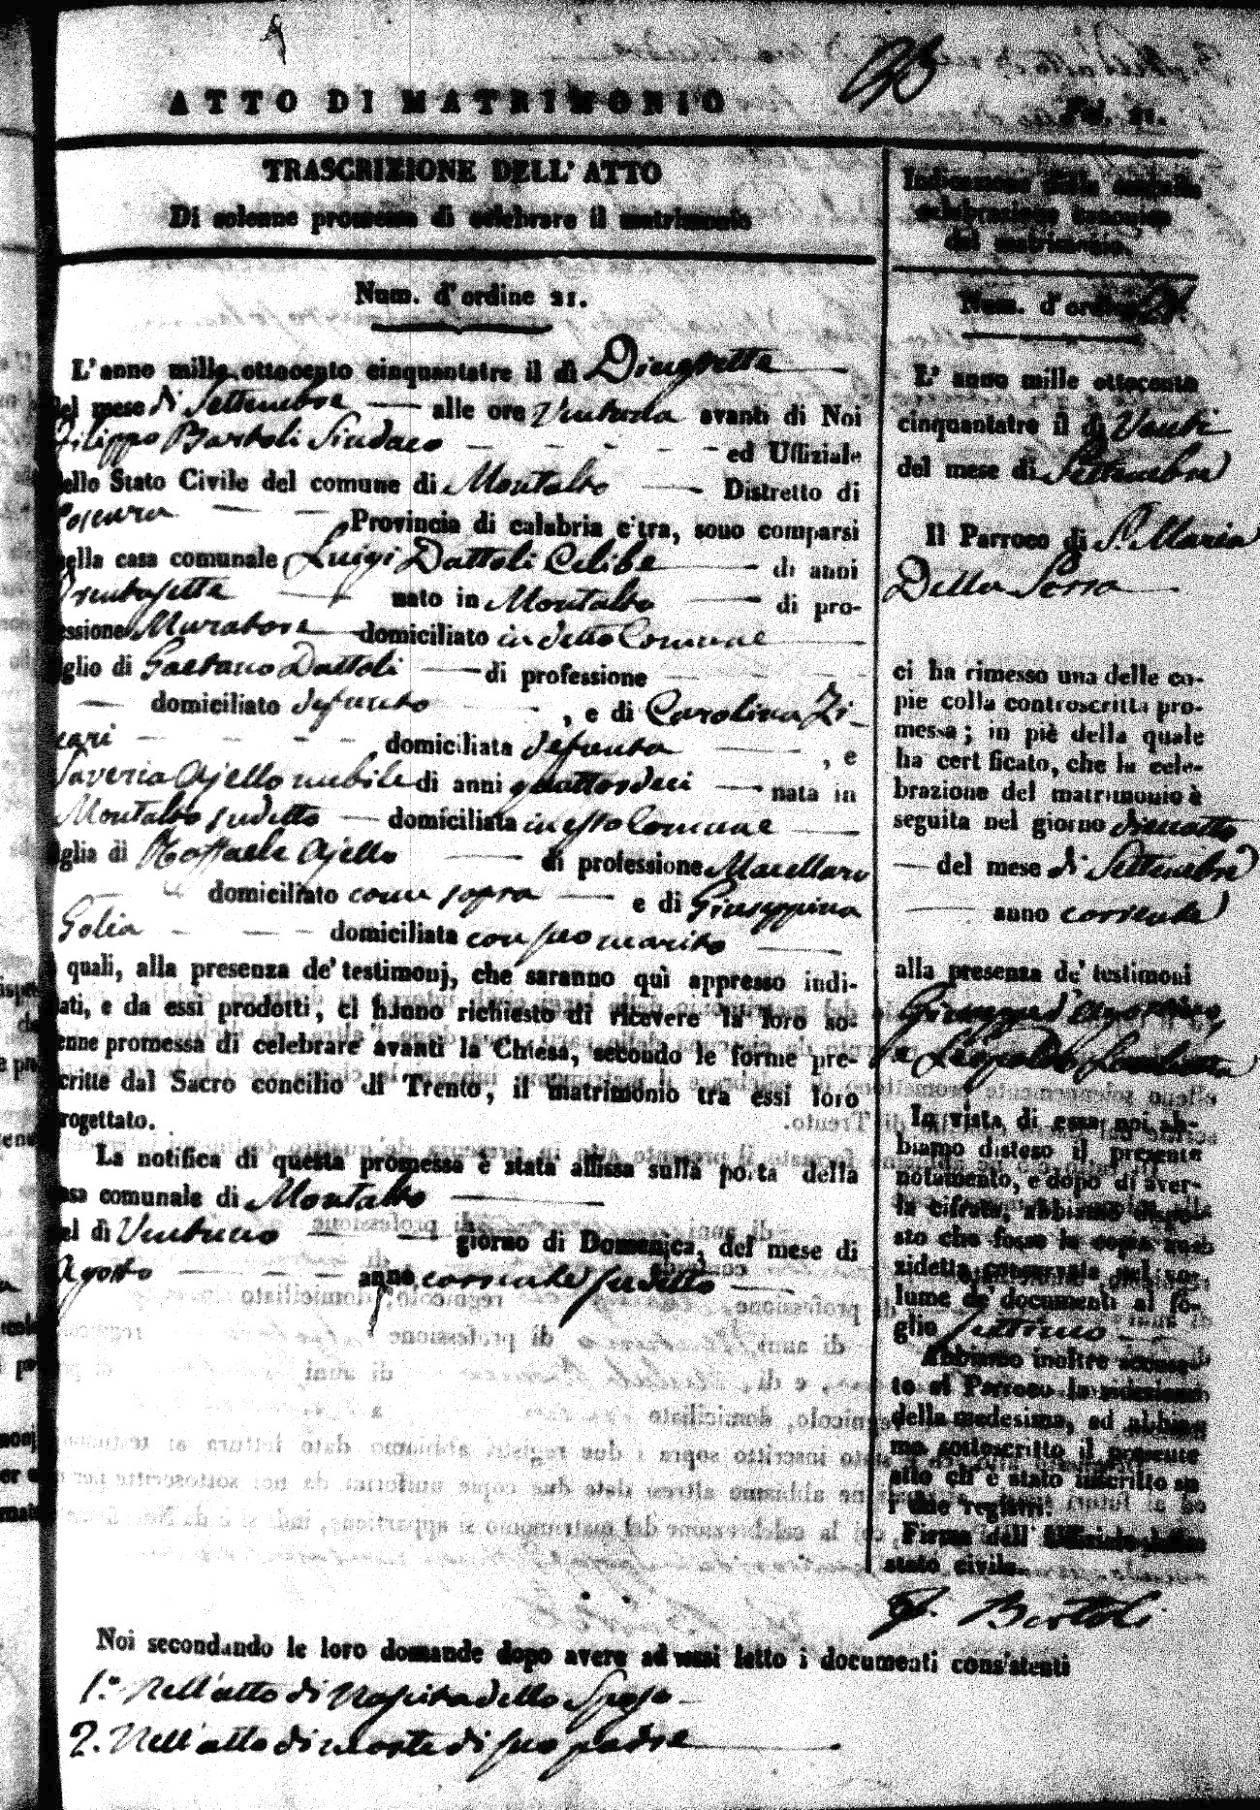 ATTO DI MATRIMONIO
Fol. 21.
TRASCRIZIONE DELL' ATTO
Di solenne promessa di celebrare il matrimonio
Num. d'ordine 21.
L'anno mille ottocento cinquantatre il dì Diciassette
del mese di Settembre alle ore Ventuna avanti di Noi
Filippo Bartoli Sindaco ed Uffiziale
dello Stato Civile del comune di Montalto Distretto di
Cosenza Provincia di calabria citra, sono comparsi
nella casa comunale Luigi Dattoli Celibe di anni
Trentasette nato in Montalto di pro-
fessione Muratore domiciliato in detto Comune
figlio di Gaetano Dattoli di professione
domiciliato defunto , e di Carolina Zi-
cari domiciliata defunta , e
Saveria Ajello nubile di anni quattordeci nata in
Montalto sudetto domiciliata in esso Comune
figlia di Raffaele Ajello di professione Macellaro
domiciliato come sopra e di Giuseppina
Golia domiciliata con suo marito
i quali, alla presenza de' testimonj, che saranno quì appresso indi-
cati, e da essi prodotti, ci hanno richiesto di ricevere la loro so-
lenne promessa di celebrare avanti la Chiesa, secondo le forme pre-
scritte dal Sacro concilio di Trento, il matrimonio tra essi loro
progettato.
La notifica di questa promessa è stata affissa sulla porta della
casa comunale di Montalto
nel dì Ventuno giorno di Domenica, del mese di
Agosto anno corrente sudetto
Noi secondando le loro domande dopo avere ad essi letto i documenti consistenti
1.° Nell'atto di Nascita dello Sposo
2. Nell'atto di morte di suo padre
Indicazione della seguita
celebrazione canonica
del matrimonio.
Num. d'ordine 21.
L' anno mille ottocento
cinquantatre il dì Venti
del mese di Settembre
Il Parroco di S. Maria
Della Serra
ci ha rimesso una delle co-
pie colla controscritta pro-
messa; in piè della quale
ha certificato, che la cele-
brazione del matrimonio è
seguita nel giorno dieciotto
del mese di Settembre
anno corrente
alla presenza de' testimoni
Giuseppe
Leopoldo
In vista di essa noi ab-
biamo disteso il presente
notamento, e dopo di aver-
la cifrata, abbiamo dispo-
sto che fosse la copia anzi
zidetta conservata nel vo-
lume de' documenti al fo-
glio settimo
Abbiamo inoltre accusa-
to al Parroco la ricezione
della medesima, ed abbia-
mo sottoscritto il presente
atto ch' è stato inscritto su
i due registri.
Firma dell' Uffiziale dello
stato civile
F. Bartoli